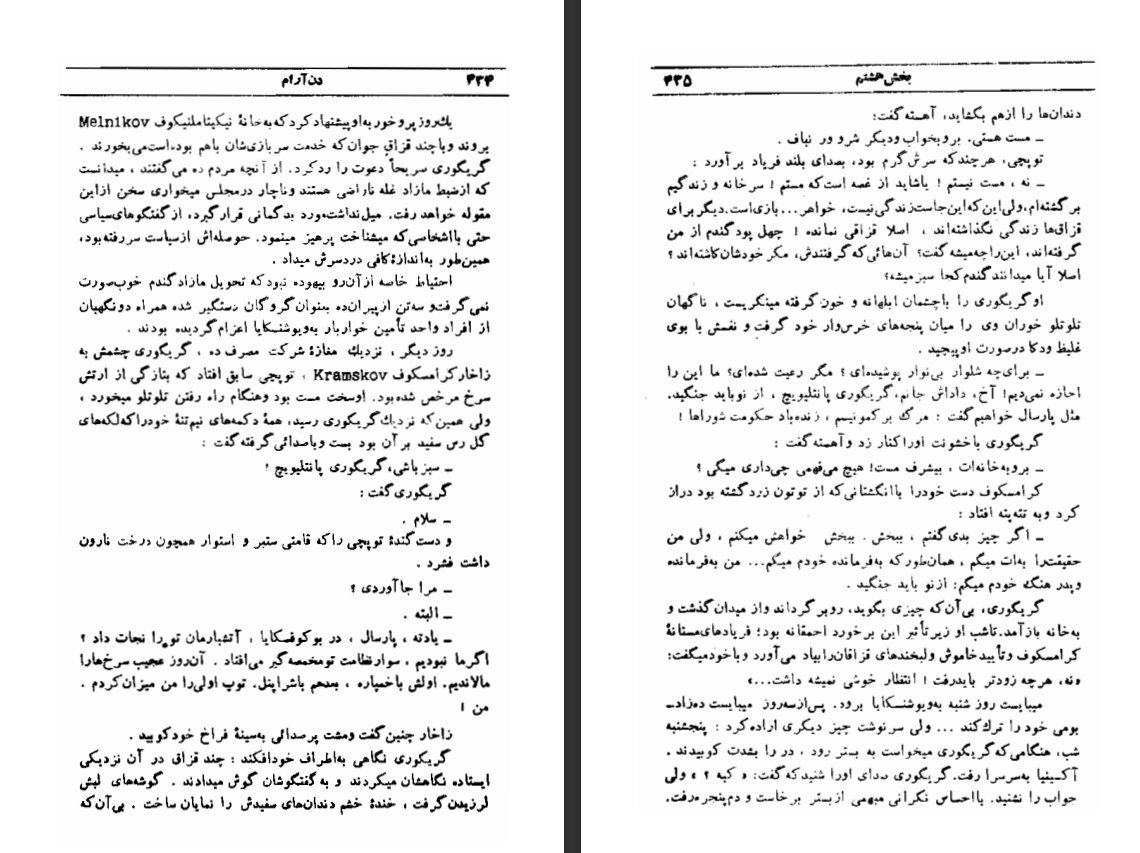 ۴۳۴
دن آرام
یك روز پروخور به او پیشنهاد کرد که به خانهٔ نیکیتا ملنیکوف Melnikov
بروند و با چند قزاق جوان که خدمت سربازی‌شان باهم بوده‌است می بخورند .
گریگوری صریحاً دعوت را رد کرد. از آنچه مردم ده می‌گفتند ، میدانست
که از ضبط مازاد غله ناراضی هستند و ناچار در مجلس میخواری سخن از این
مقوله خواهد رفت. میل نداشت مورد بدگمانی قرار گیرد، از گفتگوهای سیاسی
حتی با اشخاصی که میشناخت پرهیز مینمود. حوصله‌اش از سیاست سر رفته بود،
همین‌طور به‌اندازهٔ کافی دردسرش میداد .
احتیاط خاصه از آن‌رو بیهوده نبود که تحویل مازاد گندم خوب صورت
نمی‌گرفت و سه تن از پیران ده بعنوان گروگان دستگیر شده همراه دو نگهبان
از افراد واحد تأمین خواربار به ویوشنسکایا اعزام گردیده بودند .
روز دیگر ، نزدیك مغازهٔ شرکت مصرف ده ، گریگوری چشمش به
زاخار کرامسکوف Kramskov ، توپچی سابق افتاد که بتازگی از ارتش
سرخ مرخص شده بود. او سخت مست بود و هنگام راه رفتن تلوتلو میخورد ،
ولی همین‌که نزدیك گریگوری رسید، همهٔ دکمه‌های نیم‌تنهٔ خود را که لکه‌های
گل رس سفید بر آن بود بست و با صدائی گرفته گفت :
ـ سبز باشی، گریگوری پانتلیویچ !
گریگوری گفت :
ـ سلام .
و دست گندهٔ توپچی را که قامتی ستبر و استوار همچون درخت نارون
داشت فشرد .
ـ مرا جا آوردی ؟
ـ البته .
ـ یادته ، پارسال ، در بوکوفسکایا ، آتشبارمان تو را نجات داد ؟
اگر ما نبودیم ، سوار نظامت تو مخمصه گیر می‌افتاد . آن‌روز عجیب سرخ‌ها را
مالاندیم. اولش با خمپاره ، بعدهم با شراپنل. توپ اولی را من میزان کردم .
من !
زاخار چنین گفت و مشت پرصدائی به سینهٔ فراخ خود کوبید .
گریگوری نگاهی به‌اطراف خود افکند : چند قزاق در آن نزدیکی
ایستاده نگاهشان میکردند و به گفتگوشان گوش میدادند . گوشه‌های لبش
لرزیدن گرفت ، خندهٔ خشم دندان‌های سفیدش را نمایان ساخت . بی‌آن‌که
بخش هشتم
۴۳۵
دندان‌ها را از هم بگشاید، آهسته گفت:
ـ مست هستی. برو بخواب و دیگر شر و ور نباف .
توپچی، هرچند که سرش گرم بود، بصدای بلند فریاد برآورد :
ـ نه ، مست نیستم ! یا شاید از غصه است که مستم ! سر خانه و زندگیم
برگشته‌ام، ولی این که این‌جاست زندگی نیست، خواهر... بازی است. دیگر برای
قزاق‌ها زندگی نگذاشته‌اند ، اصلا قزاقی نمانده ! چهل پود گندم از من
گرفته‌اند، این را چه میشه گفت؟ آن‌هائی که گرفتندش، مگر خودشان کاشته‌اند ؟
اصلا آیا میدانند گندم کجا سبز میشه؟
او گریگوری را با چشمان ابلهانه و خون گرفته مینگریست ، ناگهان
تلوتلو خوران وی را میان پنجه‌های خرس‌وار خود گرفت و نفسش با بوی
غلیظ ودکا در صورت او پیچید .
ـ برای چه شلوار بی‌نوار پوشیده‌ای ؟ مگر رعیت شده‌ای؟ ما این را
اجازه نمی‌دیم! آخ، داداش جانم، گریگوری پانتلیویچ ، از نو باید جنگید.
مثل پارسال خواهیم گفت : مرگ بر کمونیسم ، زنده‌باد حکومت شوراها !
گریگوری با خشونت او را کنار زد و آهسته گفت :
ـ برو به خانه‌ات ، بیشرف مست! هیچ می‌فهمی چی داری میگی ؟
کرامسکوف دست خود را با انگشتانی که از توتون زرد گشته بود دراز
کرد و به تته‌پته افتاد :
ـ اگر چیز بدی گفتم ، ببخش . ببخش خواهش میکنم ، ولی من
حقیقت را به‌ات میگم ، همان‌طور که به فرمانده خودم میگم... من به فرمانده
و پدر هنگ خودم میگم: از نو باید جنگید .
گریگوری، بی‌آن‌که چیزی بگوید، رو برگرداند و از میدان گذشت و
به خانه بازآمد. تا شب او زیر تأثیر این برخورد احمقانه بود؛ فریادهای مستانهٔ
کرامسکوف و تأیید خاموش و لبخندهای قزاقان را بیاد می‌آورد و با خود میگفت:
«نه، هرچه زودتر باید رفت ! انتظار خوشی نمیشه داشت...»
میبایست روز شنبه به ویوشنسکایا برود. پس از سه روز میبایست ده زاد-
بومی خود را ترك کند ... ولی سرنوشت چیز دیگری اراده کرد : پنجشنبه
شب، هنگامی که گریگوری میخواست به بستر رود ، در را بشدت کوبیدند .
آکسینیا به سرسرا رفت. گریگوری صدای او را شنید که گفت: « کیه ؟ » ولی
جواب را نشنید. با احساس نگرانی مبهمی از بستر برخاست و دم پنجره رفت.